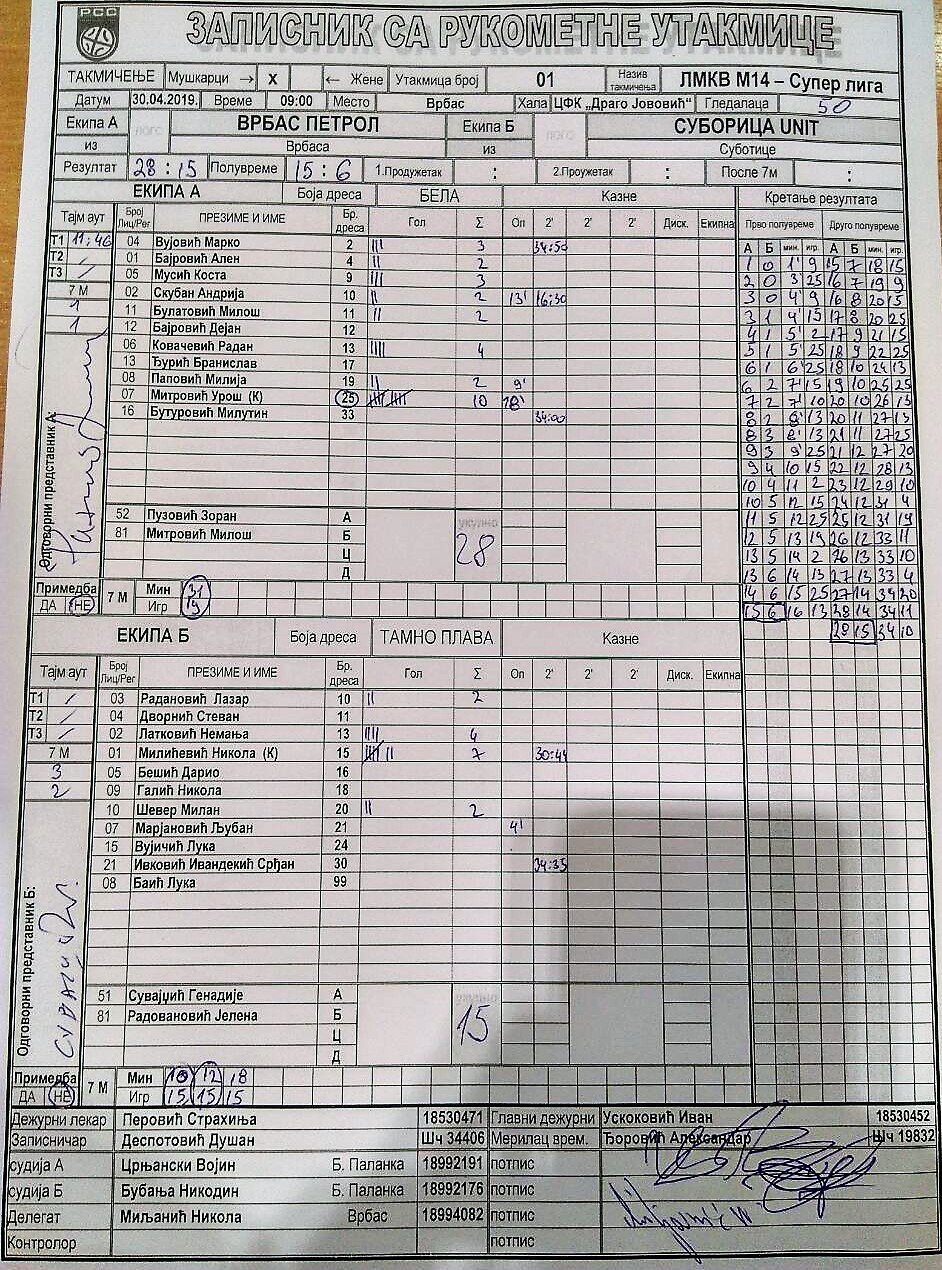 РСС
ЗАПИСНИК СА РУКОМЕТНЕ УТАКМИЦЕ
ТАКМИЧЕЊЕ Мушкарци → X ← Жене Утакмица број 01 Назив такмичења ЛМКВ М14 – Супер лига
Датум 30.04.2019. Време 09:00 Место Врбас Хала ЦФК „Драго Јововић“ Гледалаца 50
Екипа А лого ВРБАС ПЕТРОЛ Екипа Б лого СУБОРИЦА UNIT
из Врбаса из Суботице
Резултат 28 : 15 Полувреме 15 : 6 1.Продужетак : 2.Проужетак : После 7м :
ЕКИПА А Боја дреса БЕЛА Казне Кретање резултата
Тајм аут Број Лиц/Рег ПРЕЗИМЕ И ИМЕ Бр. дреса Гол Σ Оп 2' 2' 2' Диск. Екипна Прво полувреме Друго полувреме
А Б мин. игр. А Б мин. игр.
Т1 11:46 04 Вујовић Марко 2 III 3 34:50
Т2 / 01 Бајровић Ален 4 II 2
Т3 / 05 Мусић Коста 9 III 3
7 М 02 Скубан Андрија 10 II 2 13' 16:30
1 11 Булатовић Милош 11 II 2
1 12 Бајровић Дејан 12
06 Ковачевић Радан 13 IIII 4
13 Ђурић Бранислав 17
08 Паповић Милија 19 II 2 9'
07 Митровић Урош (К) 25 IIIII IIIII 10 18'
16 Бутуровић Милутин 33 34:00
1 0 1' 9 15 7 18 15
2 0 3' 25 16 7 19 9
3 0 4' 9 16 8 20 15
3 1 4' 15 17 8 20 25
4 1 5' 2 17 9 21 15
5 1 5' 25 18 9 22 25
6 1 6' 25 18 10 24 13
6 2 7' 15 19 10 25 25
7 2 7' 10 20 10 26 13
8 2 8' 13 20 11 27 13
8 3 8' 13 21 11 27 25
9 3 9' 25 21 12 27 20
9 4 10 15 22 12 28 13
10 4 11 2 23 12 29 10
10 5 12 15 24 12 31 4
11 5 12 25 25 12 31 19
12 5 13 19 26 12 33 11
13 5 14 2 26 13 33 10
13 6 14 13 27 13 33 4
14 6 15 25 27 14 34 20
15 6 16 13 28 14 34 11
28 15 34 10
Одговорни представник А:
52 Пузовић Зоран А укупно 28
81 Митровић Милош Б
Ц
Д
Примедба ДА НЕ 7 М Мин 31
Игр 19
ЕКИПА Б Боја дреса ТАМНО ПЛАВА Казне
Тајм аут Број Лиц/Рег ПРЕЗИМЕ И ИМЕ Бр. дреса Гол Σ Оп 2' 2' 2' Диск. Екипна
Т1 / 03 Радановић Лазар 10 II 2
Т2 / 04 Дворнић Стеван 11
Т3 / 02 Латковић Немања 13 IIII 4
7 М 01 Милићевић Никола (К) 15 IIIII II 7 30:44
3 05 Бешић Дарио 16
2 09 Галић Никола 18
10 Шевер Милан 20 II 2
07 Марјановић Љубан 21 4'
15 Вујичић Лука 24
21 Ивковић Ивандекић Срђан 30 34:35
08 Баић Лука 99
Одговорни представник Б:
51 Сувајџић Генадије А укупно 15
81 Радовановић Јелена Б
Ц
Д
Примедба ДА НЕ 7 М Мин 10 12 18
Игр 15 15 15
Дежурни лекар Перовић Страхиња 18530471 Главни дежурни Ускоковић Иван 18530452
Записничар Деспотовић Душан Шч 34406 Мерилац врем. Ђоровић Александар Шч 19832
судија А Црњански Војин Б. Паланка 18992191 потпис
судија Б Бубања Никодин Б. Паланка 18992176 потпис
Делегат Миљанић Никола Врбас 18994082 потпис
Контролор потпис